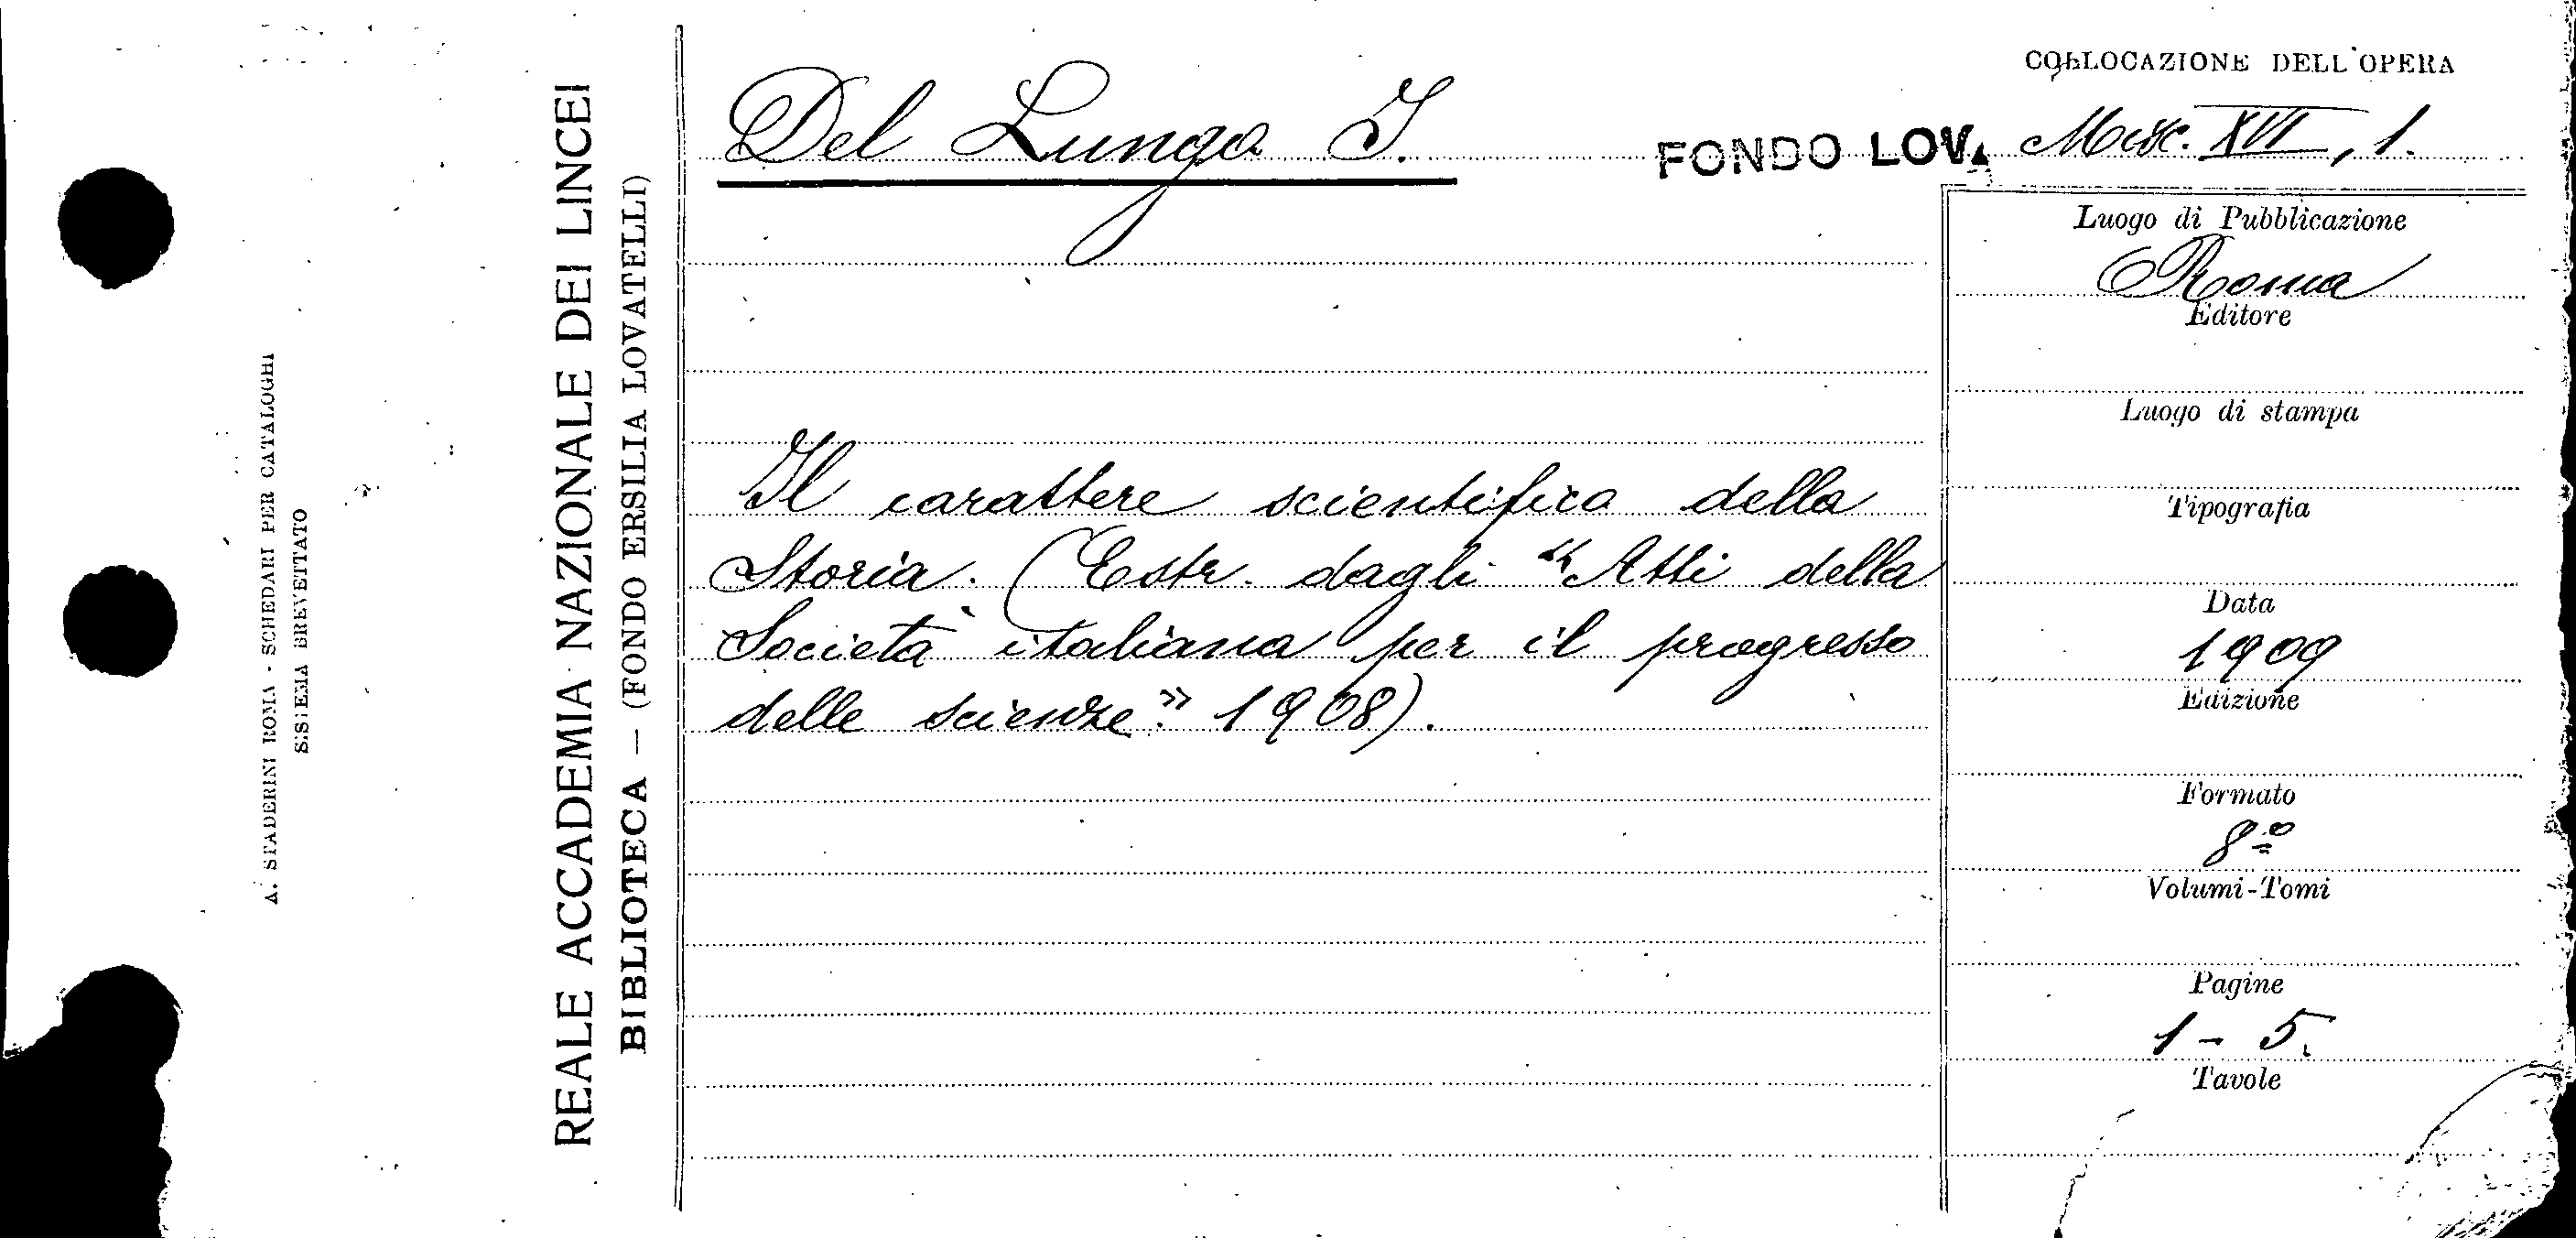 COLLOCAZIONE DELL'OPERA
Del Lungo I.
FONDO LOV. Misc. XVI, 1.
REALE ACCADEMIA NAZIONALE DEI LINCEI
BIBLIOTECA — (FONDO ERSILIA LOVATELLI)
A. STADERINI ROMA - SCHEDARI PER CATALOGHI
SISTEMA BREVETTATO
Il carattere scientifico della
Storia. (Estr. dagli "Atti della
Società italiana per il progresso
delle scienze". 1908).
Luogo di Pubblicazione
Roma
Editore
Luogo di stampa
Tipografia
Data
1909
Edizione
Formato
8º
Volumi-Tomi
Pagine
1 - 5.
Tavole